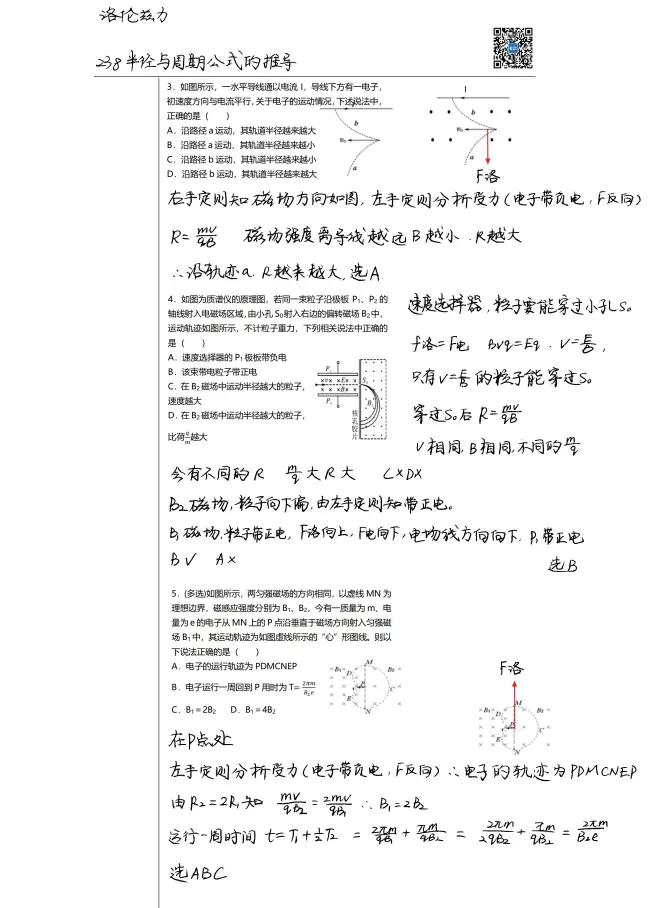 洛伦兹力
238 半径与周期公式的推导
3．如图所示，一水平导线通以电流 I，导线下方有一电子，
初速度方向与电流平行，关于电子的运动情况，下述说法中，
正确的是（　　）
A．沿路径 a 运动，其轨道半径越来越大
B．沿路径 a 运动，其轨道半径越来越小
C．沿路径 b 运动，其轨道半径越来越小
D．沿路径 b 运动，其轨道半径越来越大
b
v₀
a
I
b
v₀
a
F洛
右手定则知磁场方向如图，左手定则分析受力（电子带负电，F反向）
R=mv/qB 磁场强度离导线越远B越小．R越大
∴沿轨迹a．R越来越大，选A
4．如图为质谱仪的原理图，若同一束粒子沿极板 P₁、P₂ 的
轴线射入电磁场区域，由小孔 S₀射入右边的偏转磁场 B₂中，
运动轨迹如图所示，不计粒子重力，下列相关说法中正确的
是（　　）
A．速度选择器的 P₁ 极板带负电
B．该束带电粒子带正电
C．在 B₂ 磁场中运动半径越大的粒子，
速度越大
D．在 B₂ 磁场中运动半径越大的粒子，
比荷q/m越大
P₁
P₂
核乳胶片
速度选择器，粒子要能穿过小孔S₀
f洛=F电 Bvq=Eq．V=E/B，
只有V=E/B的粒子能穿过S₀
穿过S₀后 R=mv/qB
V相同，B相同，不同的m/q
会有不同的R m/q大R大 C×D×
B₂磁场，粒子向下偏，由左手定则知带正电。
B₁磁场，粒子带正电，F洛向上，F电向下，电场线方向向下，P₁带正电
B√ A×
选B
5．(多选)如图所示，两匀强磁场的方向相同，以虚线 MN 为
理想边界，磁感应强度分别为 B₁、B₂，今有一质量为 m、电
量为 e 的电子从 MN 上的 P 点沿垂直于磁场方向射入匀强磁
场 B₁ 中，其运动轨迹为如图虚线所示的“心”形图线。则以
下说法正确的是（　　）
A．电子的运行轨迹为 PDMCNEP
B．电子运行一周回到 P 用时为 T=2πm/B₂e
C．B₁＝2B₂ D．B₁＝4B₂
B₁ M B₂
D
P
C
E
N
F洛
B₁ M B₂
D
P
C
E
N
在P点处
左手定则分析受力（电子带负电，F反向）∴电子的轨迹为PDMCNEP
由R₂=2R₁知 mv/qB₂=2mv/qB₁ ∴B₁=2B₂
运行一周时间 t=T₁+½T₂ =2πm/qB₁+πm/qB₂ =2πm/2qB₂+πm/qB₂=2πm/B₂e
选ABC